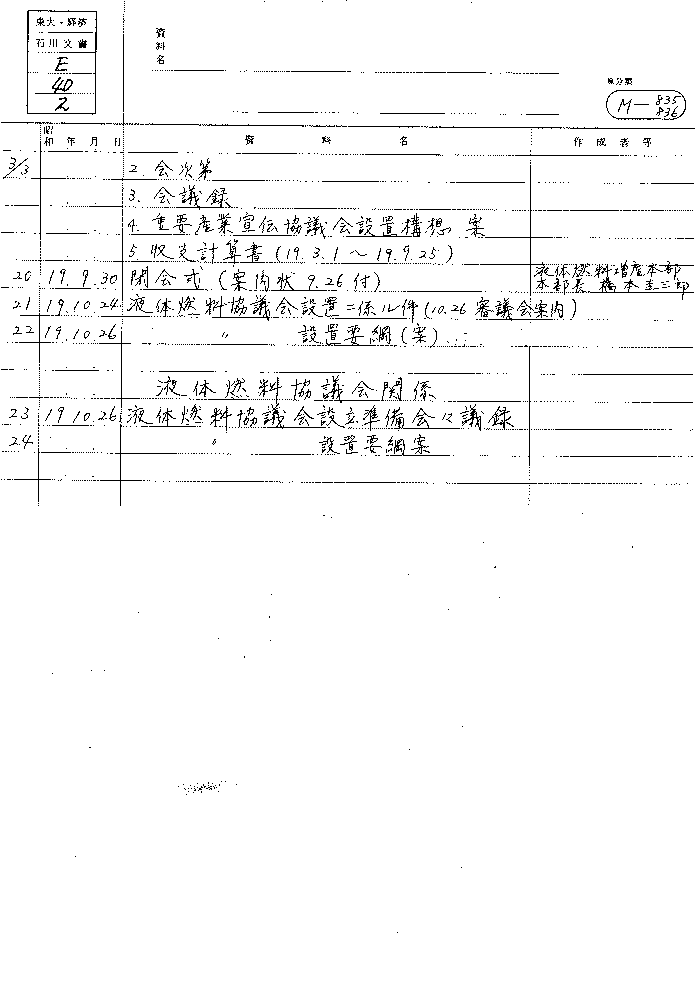 東大・経済
石川文書
E
40
2
資料名
原分類
M-835
836
昭和 年 月 日 資料名 作成者等
3/3 2. 会次第
3. 会議録
4. 重要産業宣伝協議会設置構想 案
5. 収支計算書(19.3.1~19.9.25)
20 19.9.30 閉会式(案内状 9.26付) 液体燃料増産本部
本部長 橋本圭三郎
21 19.10.24 液体燃料協議会設置ニ係ル件(10.26 審議会案内)
22 19.10.26 〃 設置要綱(案)
液体燃料協議会関係
23 19.10.26 液体燃料協議会設立準備会々議録
24 〃 設置要綱案